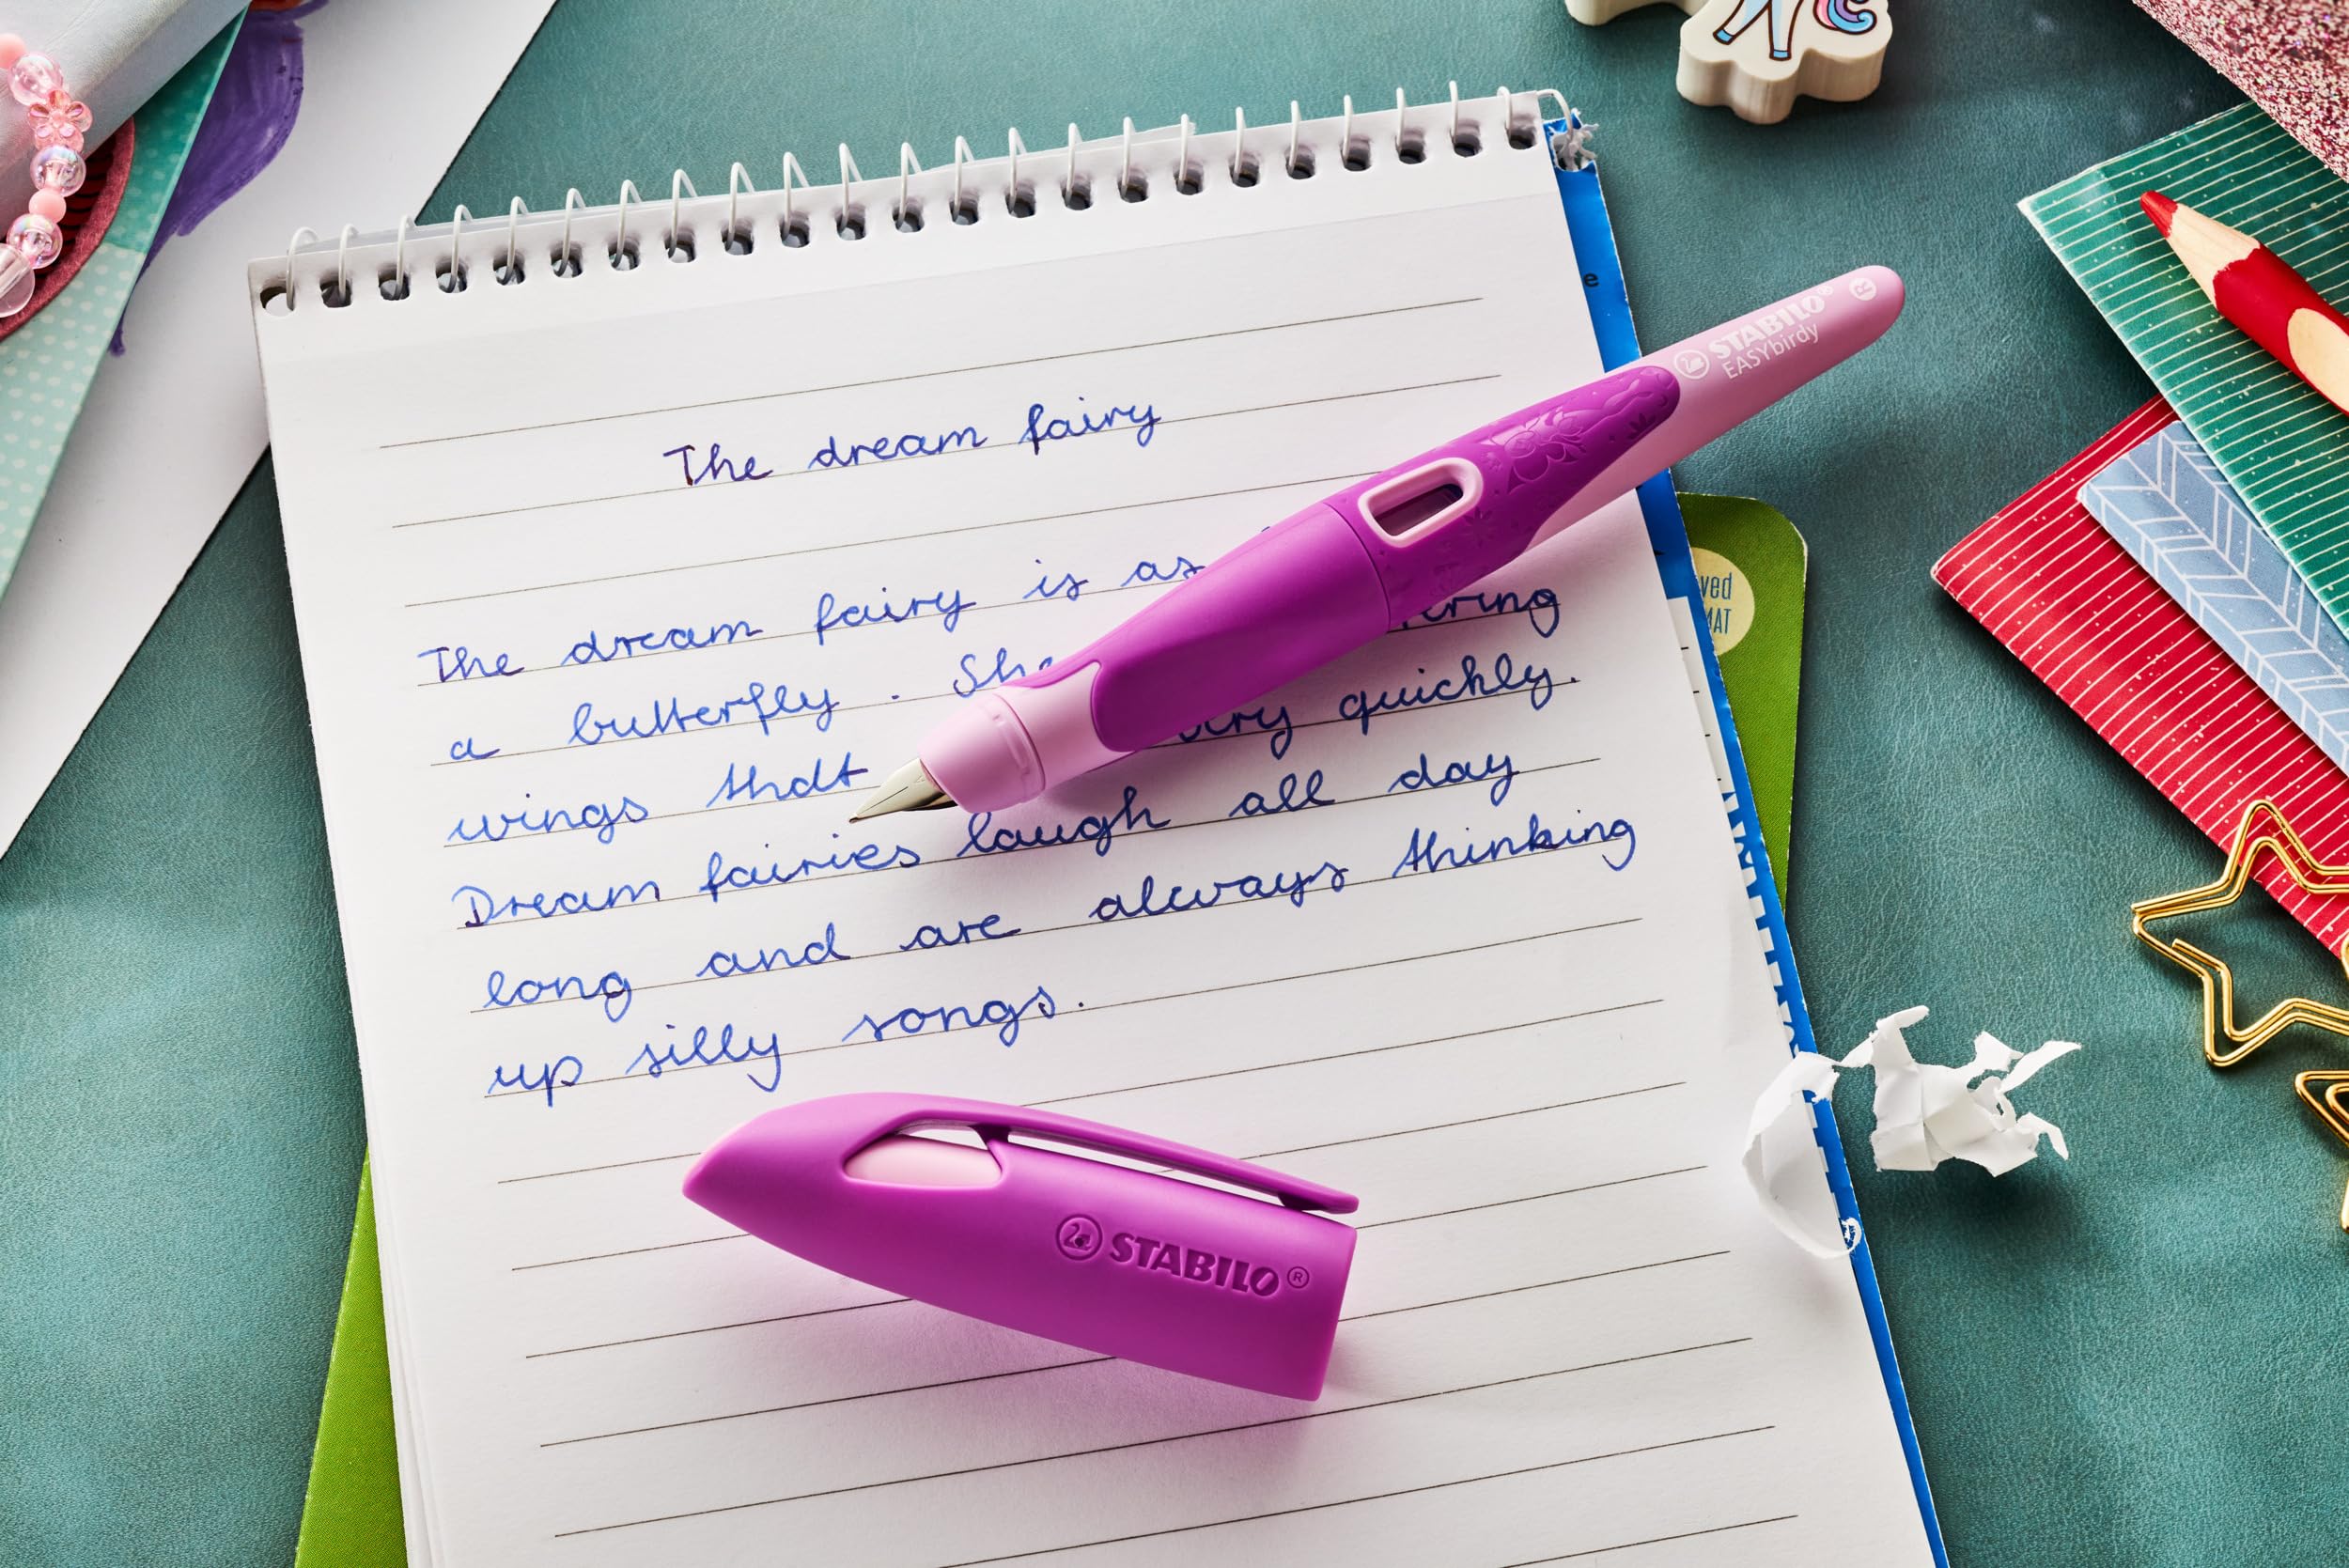 The dream fairy
The dream fairy is as
a butterfly. She
wings that quickly.
Dream fairies laugh all day
long and are always thinking
up silly songs.
STABILO®
EASYbirdy
R
STABILO®
e